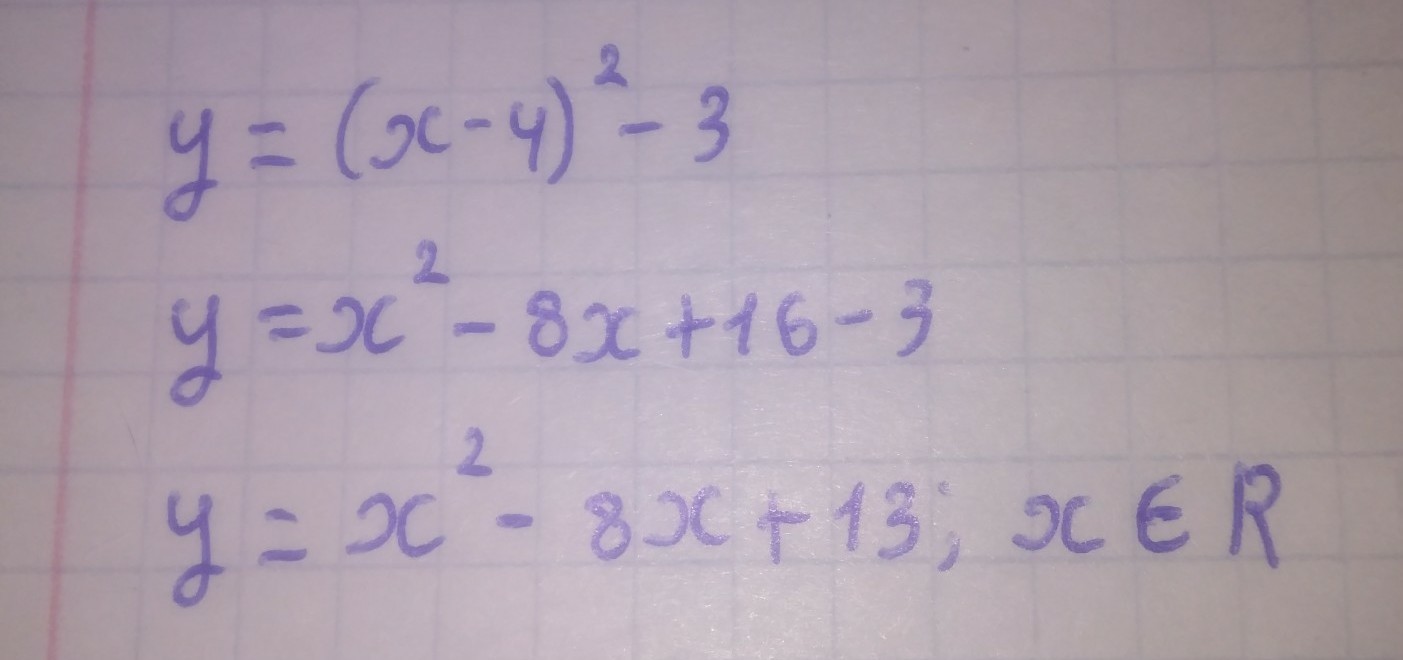 y = (x-4)² - 3
y = x² - 8x + 16 - 3
y = x² - 8x + 13; x ∈ R